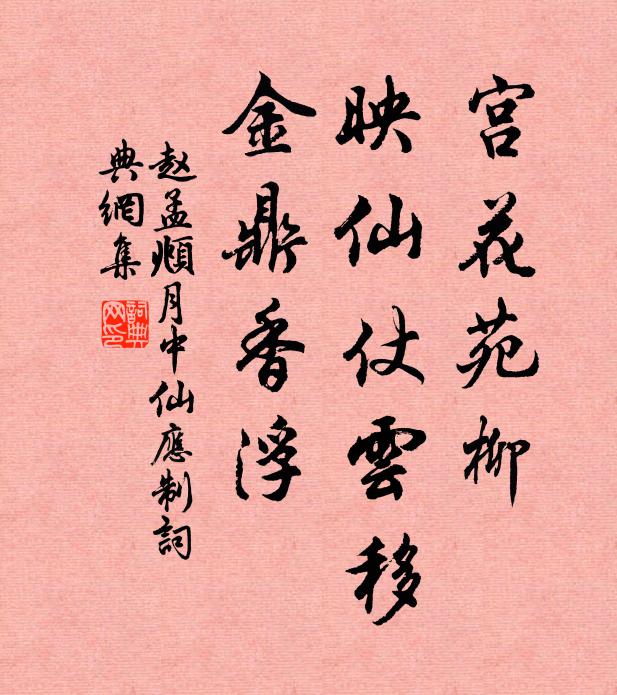 宫花苑柳
映仙仗雲移
金鼎香浮
赵孟頫月中仙應制詞
典網集
詞典网印